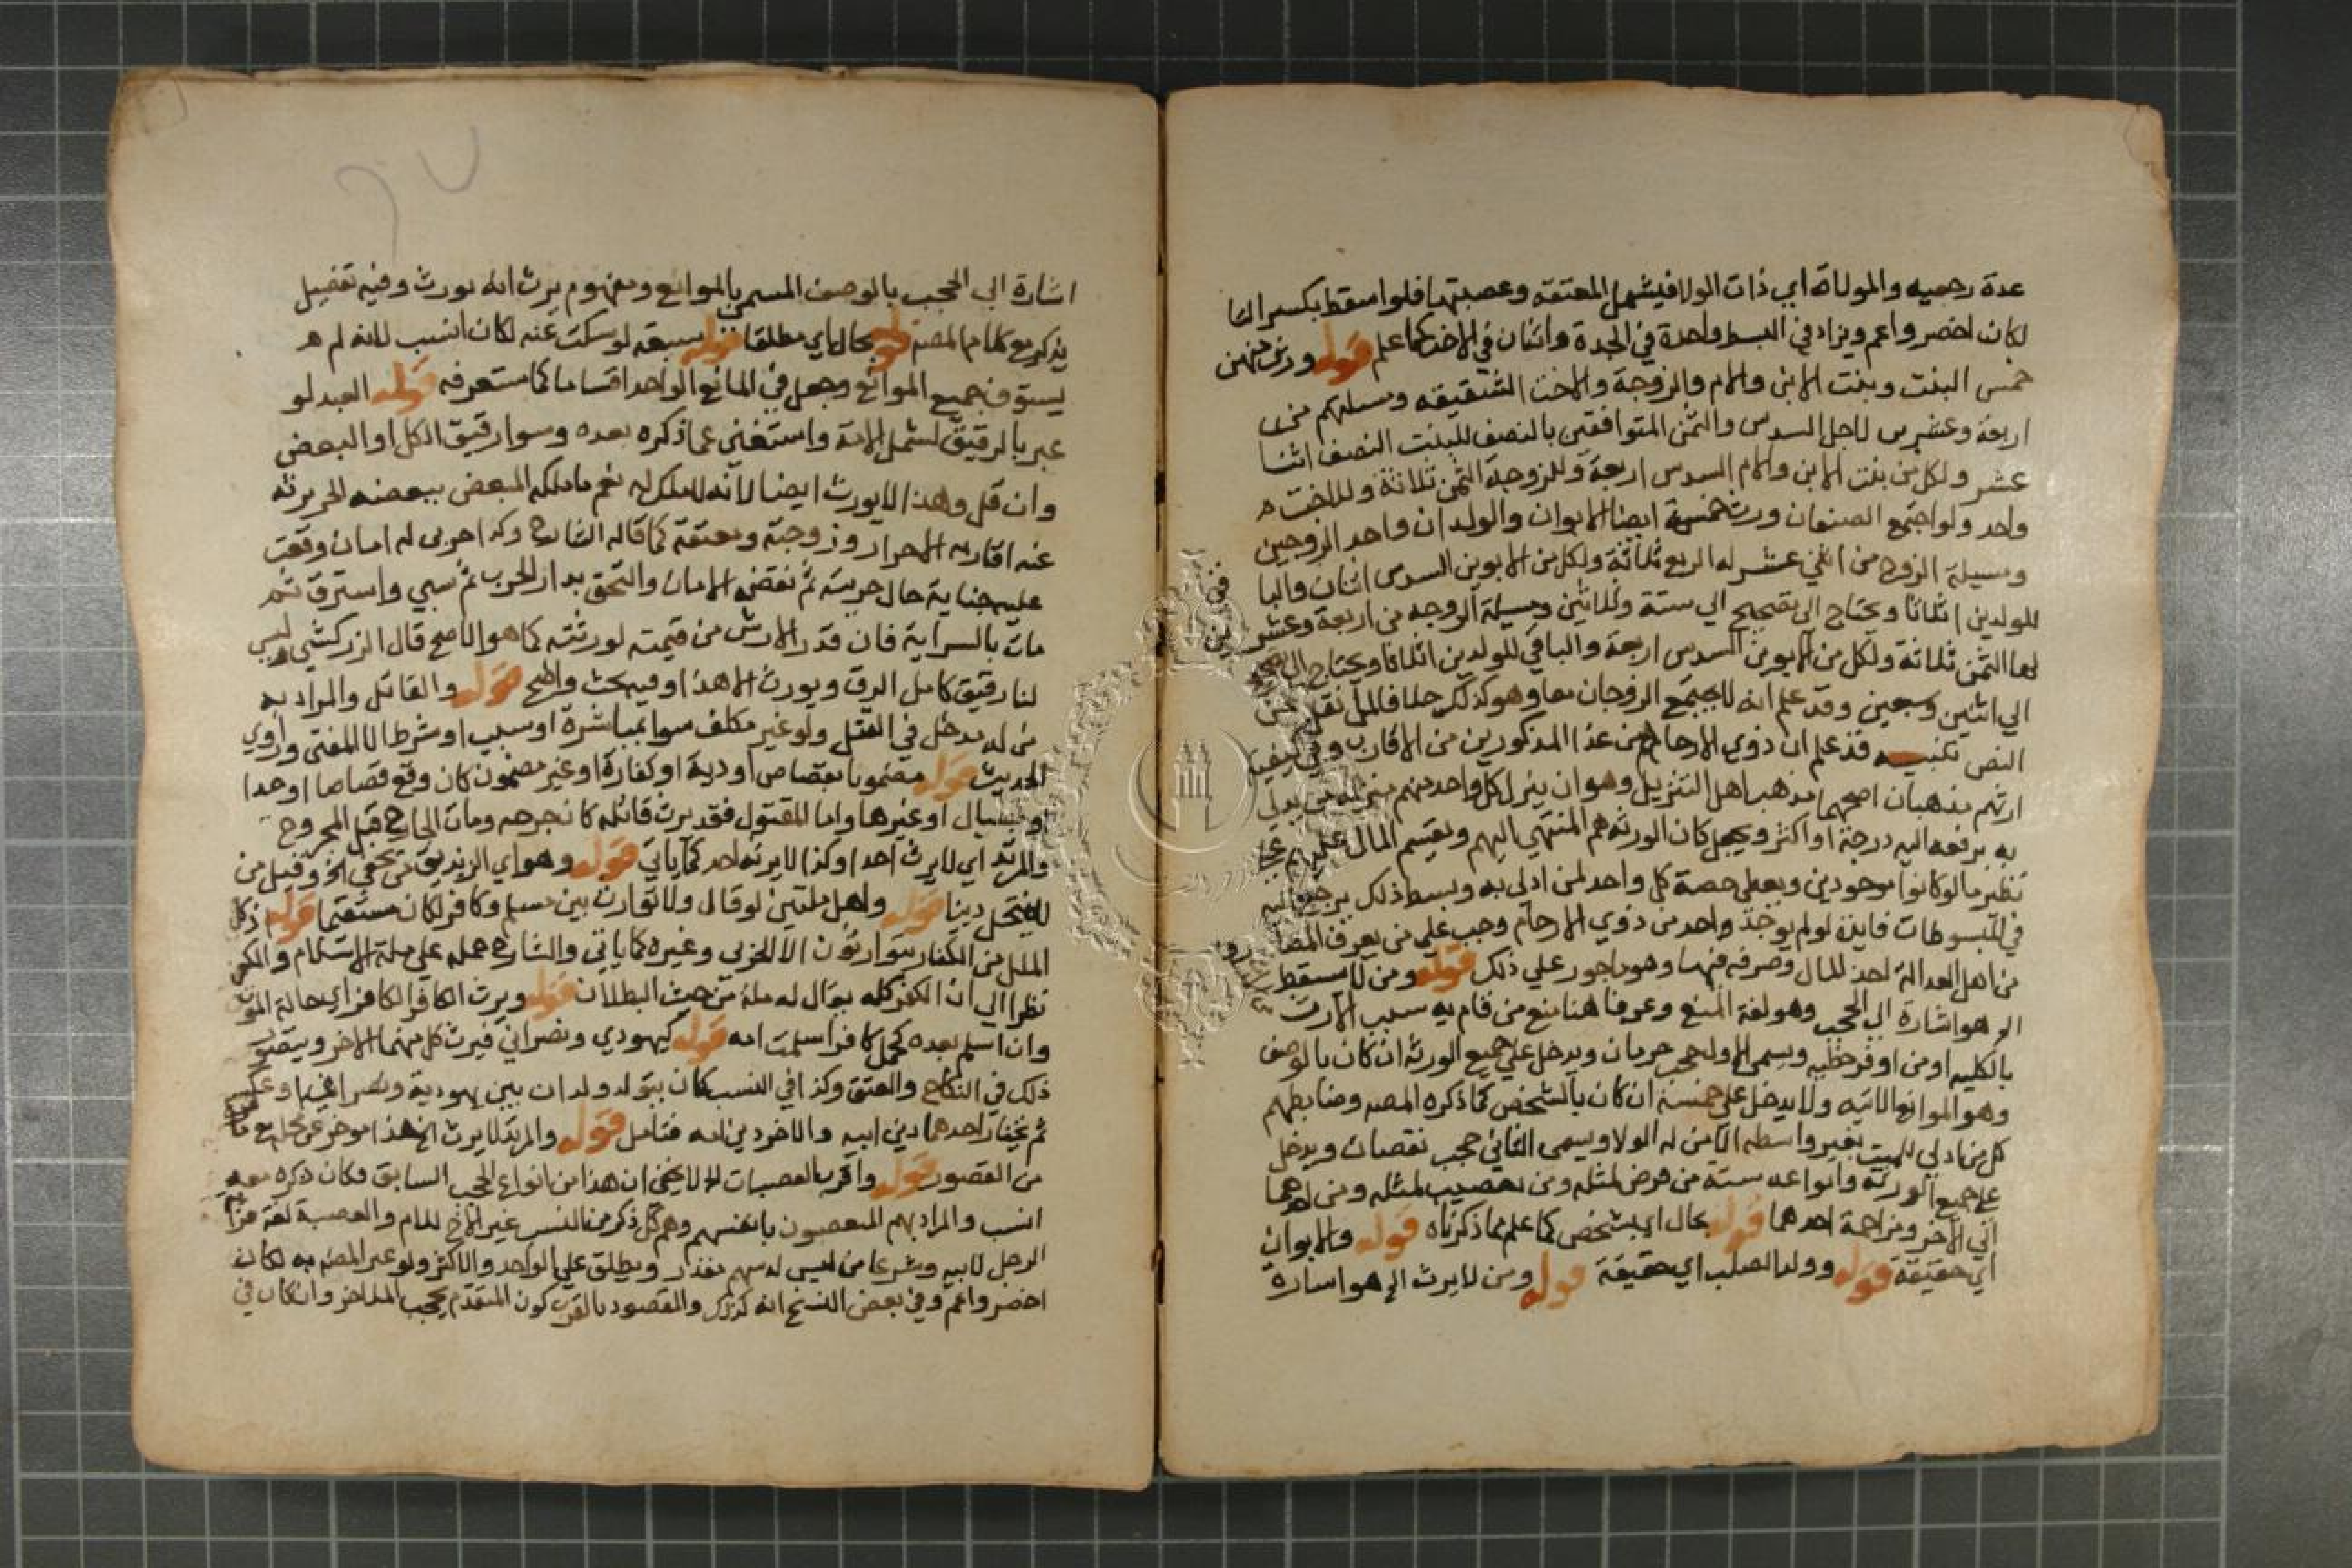 عدة رجعيه والمولاة اي ذات الولا فيشمل المعتقه وعصبتها فلو اسقط بكسر التا
لكان اخصر واعم ويزاد في البسط واحدة في الجدة واثنان في الاخت كما علم قوله وورث منهن
خمس البنت وبنت الابن والام والزوجة والاخت الشقيقه ومسيلتهم من
اربعة وعشرين لاجل السدس والثمن المتوافقين بالنصف للبنت النصف اثنا
عشر ولكل من بنت الابن والام السدس اربعة وللزوجة الثمن ثلاثة وللاخت
واحد ولو اجتمع الصنفان ورث خمسة ايضا الابوان والولدان واحد الزوجين
ومسيلة الزوج من اثني عشر له الربع ثلاثة ولكل من الابوين السدس اثنان والبا
للولدين اثلاثا ويحتاج الى تصحيح الي ستة وثلاثين ومسيلة الزوجه من اربعة وعشرين
لها الثمن ثلاثة ولكل من الابوين السدس اربعة والباقي للولدين اثلاثا ويحتاج الى
الي اثنين وسبعين وقد علم انه لا يجتمع الزوجان معا وهو كذلك خلافا لما نقل عن
النص تنبيه قد علم ان ذوي الارحام من عدا المذكورين من الاقارب وفي كيفية
ارثهم مذهبان اصحهما مذهب اهل التنزيل وهو ان ينزل كل واحد منهم منزلة من يدلي
به يرفعه اليه درجة او اكثر ويجعل كان الورثه هم المنتهي اليهم ويقسم المال عليهم
نظير ما لو كانوا موجودين ويعطى حصة كل واحد لمن ادلى به وبسط ذلك يرجع اليه
في المبسوطات فايدة لو لم يوجد واحد من ذوي الارحام وجب على من يعرف المصا
من اهل العدالة اخذ المال وصرفه فيها وهو ماجور علي ذلك قوله ومن لا يسقط
الخ هو اشارة الي الحجب وهو لغة المنع وعرفا هنا منع من قام به سبب الارث
بالكليه او من اوفر حظيه ويسمى الاول حجب حرمان ويدخل على جميع الورثة ان كان بالوصف
وهو الموانع الاتيه ولا يدخل على خمسة ان كان بالشخص كما ذكره المصه وضابطهم
كل من ادلي للميت بغير واسطه الا من له الولا ويسمى الثاني حجب نقصان ويدخل
على جميع الورثة وانواعه ستة من فرض لمثله ومن تعصيب لمثله ومن احدهما
الي الاخر ومزاحمة احدهما قوله بحال اي بشخص كما علم مما ذكرناه قوله والابوان
اي حقيقة قوله وولد الصلب اي حقيقة قوله ومن لا يرث الخ هو اشارة
اشارة الى الحجب بالوصف المسمى بالموانع ومفهوم يرث انه يورث وفيه تفصيل
يذكر مع كلام المصه قوله بحال اي مطلقا قوله سبعة لو سكت عنه لكان انسب لانه لم
يستوف جميع الموانع وجعل في المانع الواحد اقساما كما ستعرفه قوله العبد لو
عبر بالرقيق لشمل الامة واستغنى عما ذكره بعده وسوا رقيق الكل او البعض
وان قل وهذا لا يورث ايضا لانه لا ملك له نعم ما ملكه المبعض ببعضه الحر يرثه
عنه اقاربه الاحرار وزوجته ومعتقه كما قاله الشارح وكذا حربي له امان وقعت
عليه جناية حال حريته ثم نقض الامان والتحق بدار الحرب ثم سبي واسترق ثم
مات بالسراية فان قدر الارش من قيمته لورثته كما هو الاصح قال الزركشي ليس
لنا رقيق كامل الرق ويورث الا هذا وفيه بحث واضح قوله والقاتل والمراد به
من له مدخل في القتل ولو غير مكلف سوا بمباشرة او سبب او شرط لا المفتي وراوي
الحديث قوله مضمونا بقصاص او دية او كفارة او غير مضمون كان وقع قصاصا او حدا
او لصيال او غيرها واما المقتول فقد يرث قاتله كان جرحه ومات الجارح قبل المجروح
والمرتد اي لا يرث احدا وكذا لا يرثه احد كما ياتي قوله وهو اي الزنديق من يخفي الخ وقيل من
لا ينتحل دينا قوله واهل ملتين لو قال ولا توارث بين مسلم وكافر لكان مستقيما قوله
الملل من الكفار يتوارثون الا الحربي وغيره كما ياتي والشارح حمله على ملة الاسلام والكفر
نظرا الي ان الكفر كله يقال له ملة من حيث البطلان قوله ويرث الكافر الكافر اي حالة الموت
وان اسلم بعده كحمل كافر اسلمت امه قوله كيهودي ونصراني فيرث كل منهما الاخر ويتصور
ذلك في النكاح والعتق وكذا في النسب كان يتولد ولدان بين يهودية ونصراني او
ثم يختار احدهما دين ابيه والاخر دين امه فتامل قوله والمرتد لا يرث الخ هذا موخر عن محله مع
من القصور قوله واقرب العصبات الخ لا يخفى ان هذا من انواع الحجب السابق فكان ذكره معه
انسب والمراد بهم المتعصبون بانفسهم وهم كل ذكر من النسب غير الاخ للام والعصبة لغة قرابة
الرجل لابيه وشرعا من ليس له سهم مقدر ويطلق على الواحد والاكثر ولو عبر المصه به لكان
اخصر واعم وفي بعض النسخ انه كذلك والمقصود بالقرب كون المتقدم يحجب المتاخر وان كان في